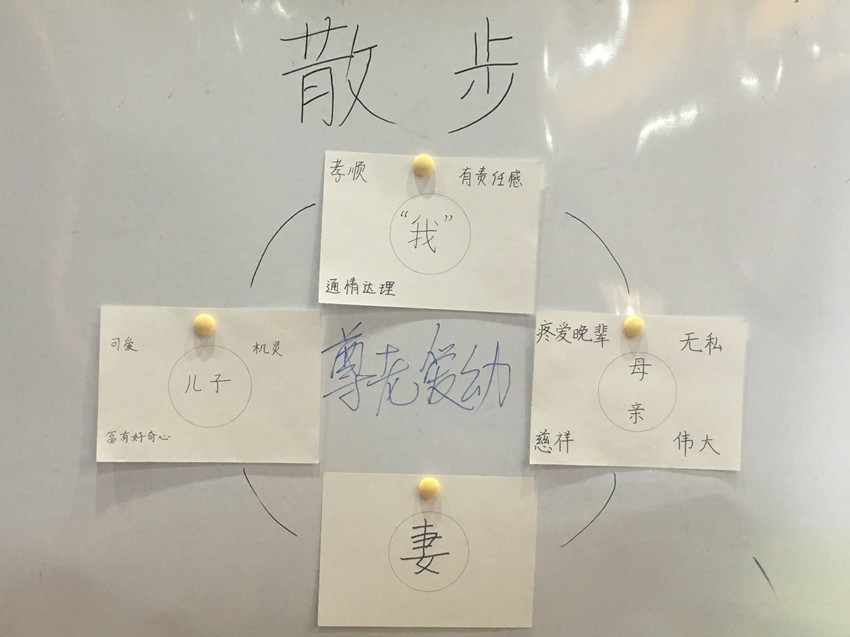 散步
孝顺
有责任感
“我”
通情达理
可爱
机灵
儿子
富有好奇心
尊老爱幼
疼爱晚辈
无私
母
亲
慈祥
伟大
妻